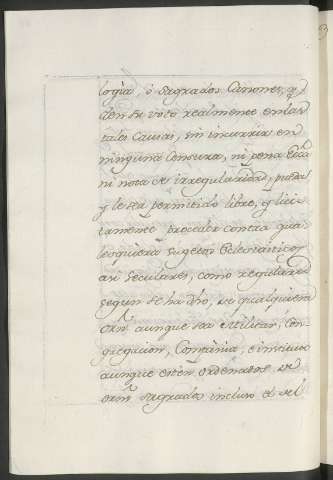 logia, ó sagrados Canones, q.e
den su voto realmente en las
tales Causas, sin incurrir en
ninguna Censura, ni pena Ecca
ni nota de irregularidad, pueda
y le sea permitido libre, y lici-
tamente proceder contra qua-
lesquiera sugetos Eclesiasticos
asi seculares, como regulares
segun se ha dho, de qualquiera
orn aunque sea Militar, Con-
gregacion, Compañia, e instituto
aunque esten ordenados de
orns sagrados incluso el del